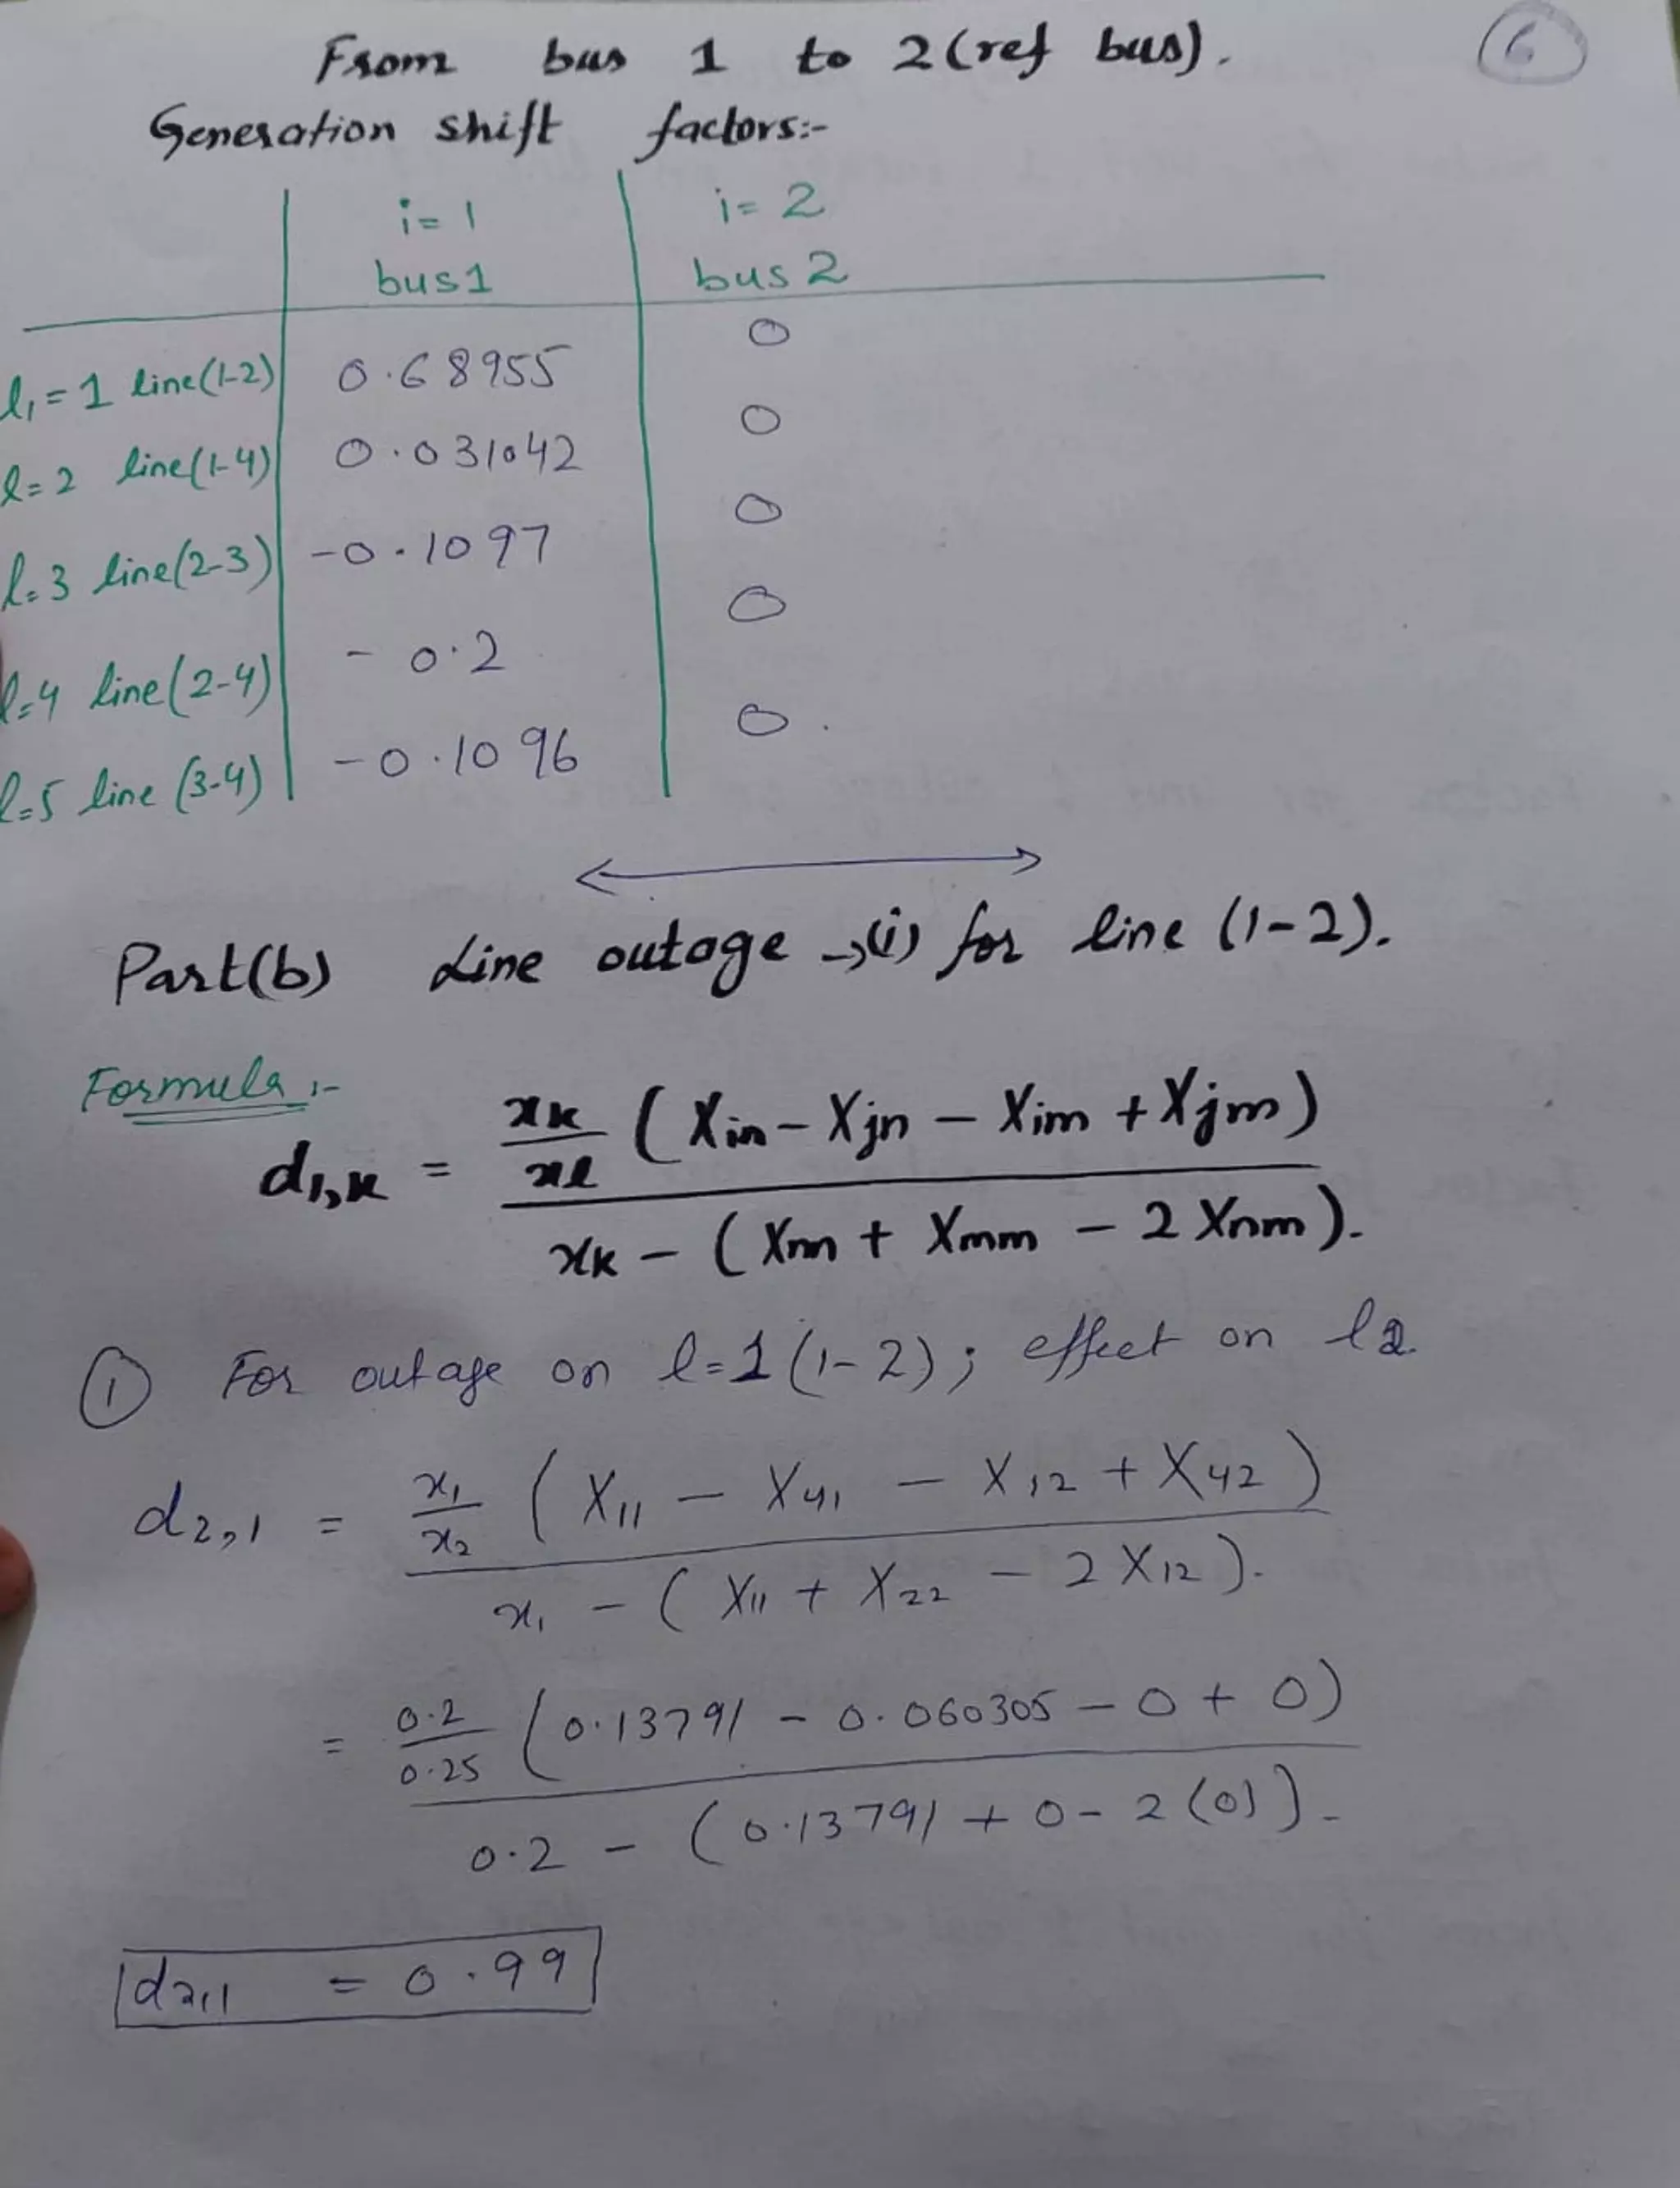 From bus 1 to 2 (ref bus).
6
Generation shift factors:-
i=1 i=2
bus1 bus 2
l₁=1 line(1-2) 0.68955 0
l=2 line(1-4) 0.031042 0
l=3 line(2-3) -0.1097 0
l=4 line(2-4) -0.2 0
l=5 line (3-4) -0.1096 0.
Part(b) Line outage →(i) for line (1-2).
Formula:-
d₁,ₖ = xk/xl (Xin - Xjn - Xim + Xjm)
xk - (Xnn + Xmm - 2 Xnm).
① For outage on l=1 (1-2); effect on l2.
d₂,₁ = x₁/x₂ (X₁₁ - X₄₁ - X₁₂ + X₄₂)
x₁ - (X₁₁ + X₂₂ - 2X₁₂).
= 0.2/0.25 (0.13791 - 0.060305 - 0 + 0)
0.2 - (0.13791 + 0 - 2(0)).
d₂,₁ = 0.99